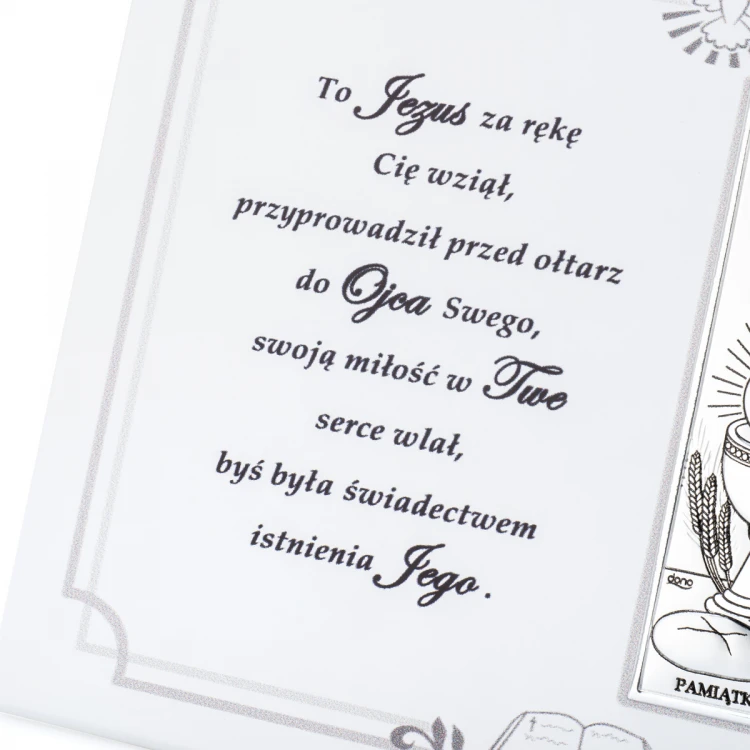 To Jezus za rękę
Cię wziął,
przyprowadził przed ołtarz
do Ojca Swego,
swoją miłość w Twe
serce wlał,
byś była świadectwem
istnienia Jego.
dono